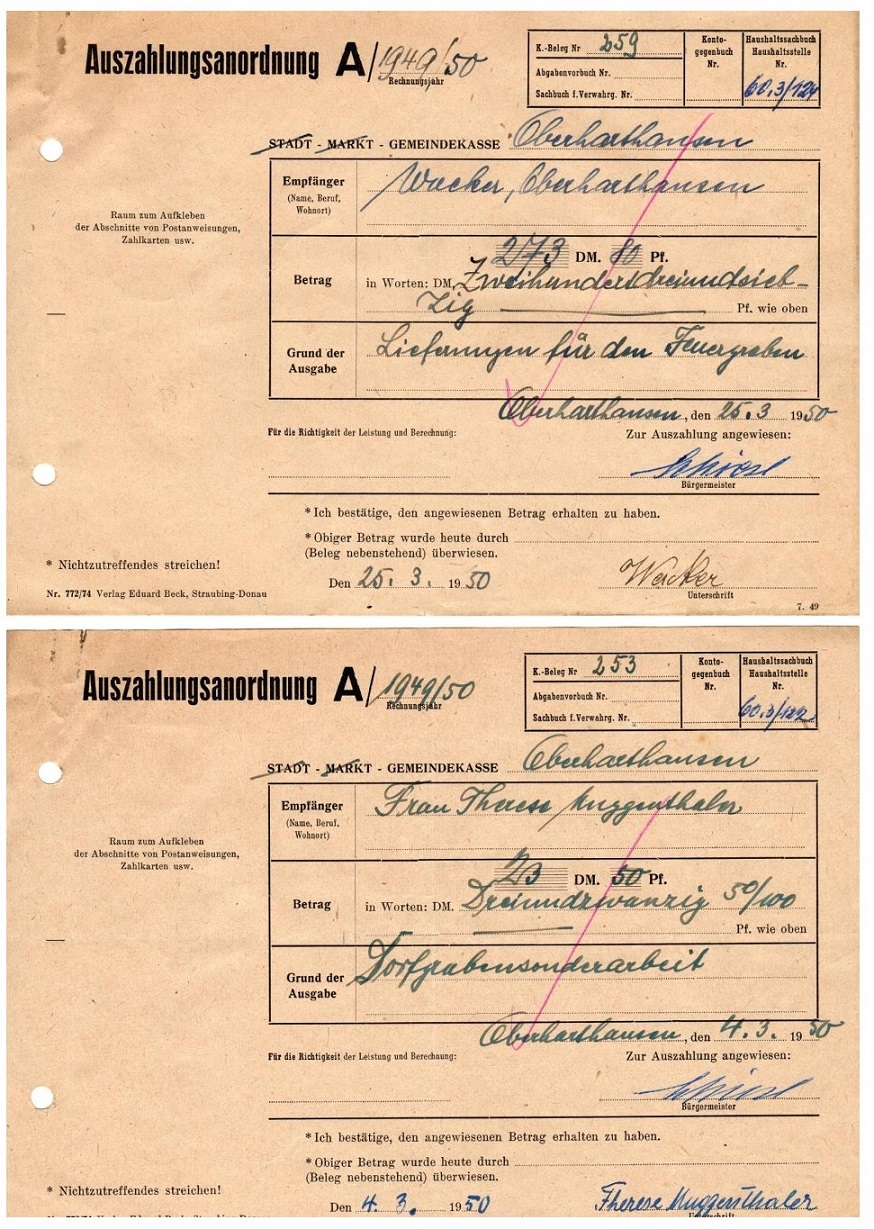 Auszahlungsanordnung A/1949/50
Rechnungsjahr
K.-Beleg Nr 259
Abgabenvorbuch Nr.
Sachbuch f. Verwahrg. Nr.
Konto-
gegenbuch
Nr.
Haushaltssachbuch
Haushaltsstelle
Nr.
60.3/124
STADT - MARKT - GEMEINDEKASSE Oberharthausen
Raum zum Aufkleben
der Abschnitte von Postanweisungen,
Zahlkarten usw.
Empfänger
(Name, Beruf,
Wohnort)
Wacker, Oberharthausen
Betrag
273 DM. 80 Pf.
in Worten: DM. Zweihundertdreiundsieb-
zig Pf. wie oben
Grund der
Ausgabe
Lieferungen für den Feuergraben
Oberharthausen, den 25.3 1950
Für die Richtigkeit der Leistung und Berechnung:
Zur Auszahlung angewiesen:
Bürgermeister
* Ich bestätige, den angewiesenen Betrag erhalten zu haben.
* Obiger Betrag wurde heute durch
(Beleg nebenstehend) überwiesen.
* Nichtzutreffendes streichen!
Den 25. 3. 1950
Wacker
Unterschrift
Nr. 772/74 Verlag Eduard Beck, Straubing-Donau
7. 49
Auszahlungsanordnung A/1949/50
Rechnungsjahr
K.-Beleg Nr 253
Abgabenvorbuch Nr.
Sachbuch f. Verwahrg. Nr.
Konto-
gegenbuch
Nr.
Haushaltssachbuch
Haushaltsstelle
Nr.
60.3/122
STADT - MARKT - GEMEINDEKASSE Oberharthausen
Raum zum Aufkleben
der Abschnitte von Postanweisungen,
Zahlkarten usw.
Empfänger
(Name, Beruf,
Wohnort)
Frau Therese Muggenthaler
Betrag
23 DM. 50 Pf.
in Worten: DM. Dreiundzwanzig 50/100
Pf. wie oben
Grund der
Ausgabe
Dorfgrabensonderarbeit
Oberharthausen, den 4.3. 1950
Für die Richtigkeit der Leistung und Berechnung:
Zur Auszahlung angewiesen:
Bürgermeister
* Ich bestätige, den angewiesenen Betrag erhalten zu haben.
* Obiger Betrag wurde heute durch
(Beleg nebenstehend) überwiesen.
* Nichtzutreffendes streichen!
Den 4. 3. 1950
Therese Muggenthaler